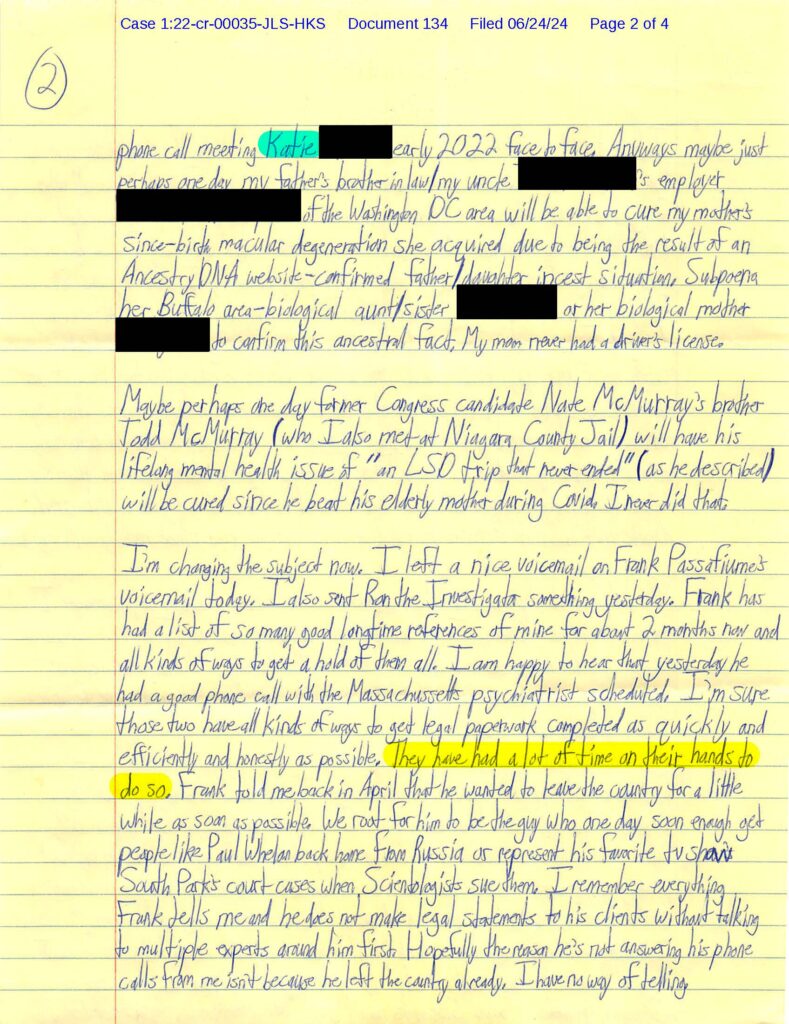 Case 1:22-cr-00035-JLS-HKS Document 134 Filed 06/24/24 Page 2 of 4
2
phone call meeting Katie early 2022 face to face. Anyways maybe just
perhaps one day my father's brother in law/my uncle 's employer
of the Washington DC area will be able to cure my mother's
since-birth macular degeneration she acquired due to being the result of an
Ancestry DNA website-confirmed father/daughter incest situation. Subpoena
her Buffalo area-biological aunt/sister or her biological mother
to confirm this ancestral fact. My mom never had a driver's license.
Maybe perhaps one day former Congress candidate Nate McMurray's brother
Todd McMurray (who I also met at Niagara County Jail) will have his
lifelong mental health issue of "an LSD trip that never ended" (as he described)
will be cured since he beat his elderly mother during Covid. I never did that.
I'm changing the subject now. I left a nice voicemail on Frank Passafiume's
voicemail today. I also sent Ron the Investigator something yesterday. Frank has
had a list of so many good longtime references of mine for about 2 months now and
all kinds of ways to get a hold of them all. I am happy to hear that yesterday he
had a good phone call with the Massachussetts psychiatrist scheduled. I'm sure
those two have all kinds of ways to get legal paperwork completed as quickly and
efficiently and honestly as possible. They have had a lot of time on their hands to
do so. Frank told me back in April that he wanted to leave the country for a little
while as soon as possible. We root for him to be the guy who one day soon enough get
people like Paul Whelan back home from Russia or represent his favorite tv show
South Park's court cases when Scientologists sue them. I remember everything
Frank tells me and he does not make legal statements to his clients without talking
to multiple experts around him first. Hopefully the reason he's not answering his phone
calls from me isn't because he left the country already. I have no way of telling.